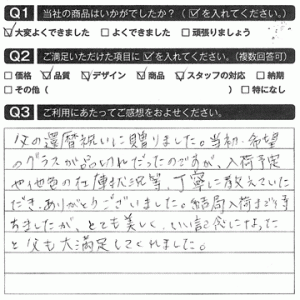 Q1 当社の商品はいかがでしたか?(☑を入れてください。)
☑大変よくできました □よくできました □頑張りましょう
Q2 ご満足いただけた項目に☑を入れてください。(複数回答可)
□価格 ☑品質 ☑デザイン ☑商品 ☑スタッフの対応 □納期
□その他( )□特になし
Q3 ご利用にあたってご感想をおよせください。
父の還暦祝いに贈りました。当初、希望
のグラスが品切れだったのですが、入荷予定
や他色の在庫状況等、丁寧に教えていた
だき、ありがとうございました。結局入荷まで待
ちましたが、とても美しく、いい記念になった
と父も大満足してくれました。